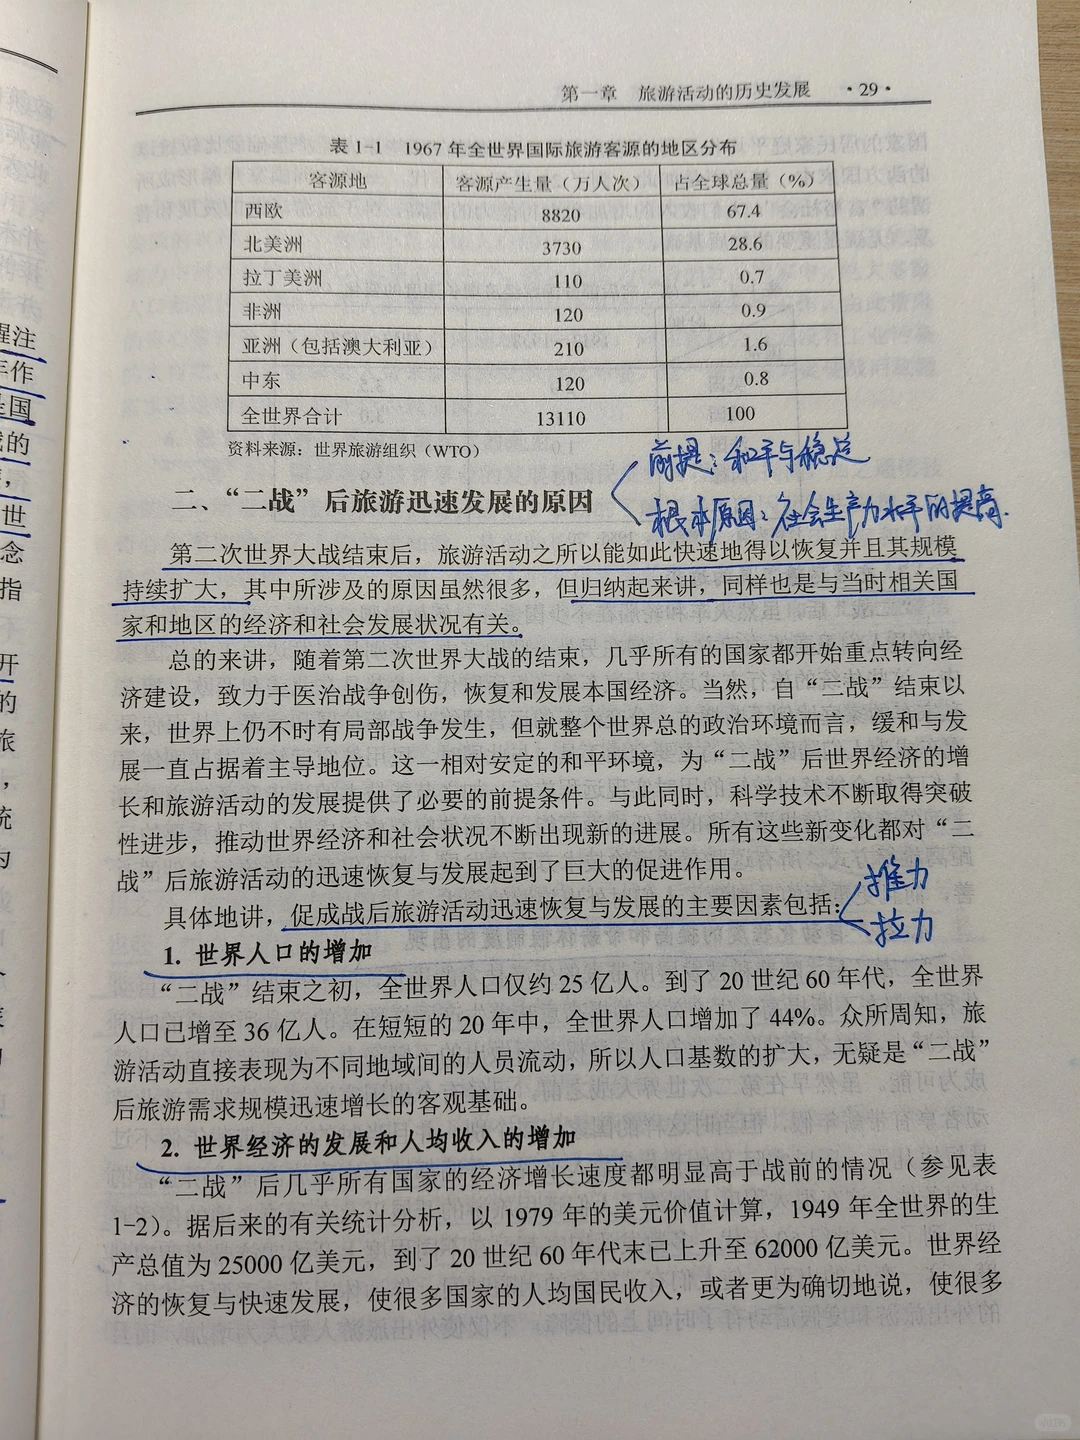 第一章 旅游活动的历史发展 ·29·
表 1-1 1967 年全世界国际旅游客源的地区分布
客源地 客源产生量（万人次） 占全球总量（%）
西欧 8820 67.4
北美洲 3730 28.6
拉丁美洲 110 0.7
非洲 120 0.9
亚洲（包括澳大利亚） 210 1.6
中东 120 0.8
全世界合计 13110 100
资料来源：世界旅游组织（WTO）
前提：和平与稳定
二、“二战”后旅游迅速发展的原因
根本原因：社会生产力水平的提高.
第二次世界大战结束后，旅游活动之所以能如此快速地得以恢复并且其规模
持续扩大，其中所涉及的原因虽然很多，但归纳起来讲，同样也是与当时相关国
家和地区的经济和社会发展状况有关。
总的来讲，随着第二次世界大战的结束，几乎所有的国家都开始重点转向经
济建设，致力于医治战争创伤，恢复和发展本国经济。当然，自“二战”结束以
来，世界上仍不时有局部战争发生，但就整个世界总的政治环境而言，缓和与发
展一直占据着主导地位。这一相对安定的和平环境，为“二战”后世界经济的增
长和旅游活动的发展提供了必要的前提条件。与此同时，科学技术不断取得突破
性进步，推动世界经济和社会状况不断出现新的进展。所有这些新变化都对“二
战”后旅游活动的迅速恢复与发展起到了巨大的促进作用。
推力
具体地讲，促成战后旅游活动迅速恢复与发展的主要因素包括：
拉力
1. 世界人口的增加
“二战”结束之初，全世界人口仅约 25 亿人。到了 20 世纪 60 年代，全世界
人口已增至 36 亿人。在短短的 20 年中，全世界人口增加了 44%。众所周知，旅
游活动直接表现为不同地域间的人员流动，所以人口基数的扩大，无疑是“二战”
后旅游需求规模迅速增长的客观基础。
2. 世界经济的发展和人均收入的增加
“二战”后几乎所有国家的经济增长速度都明显高于战前的情况（参见表
1-2）。据后来的有关统计分析，以 1979 年的美元价值计算，1949 年全世界的生
产总值为 25000 亿美元，到了 20 世纪 60 年代末已上升至 62000 亿美元。世界经
济的恢复与快速发展，使很多国家的人均国民收入，或者更为确切地说，使很多